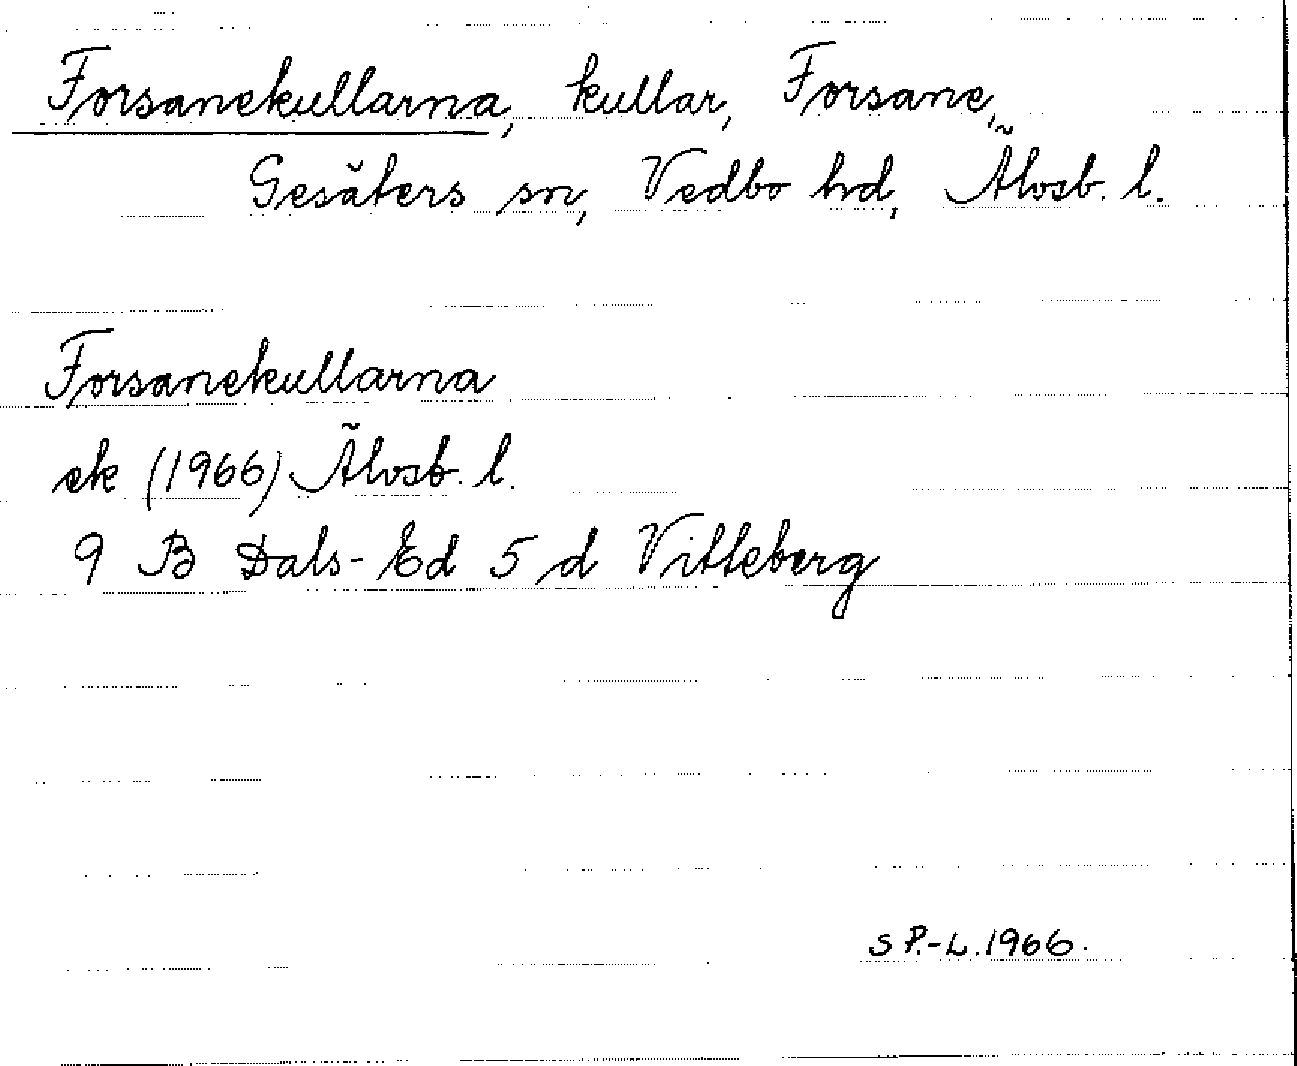 Forsanekullarna, kullar, Forsane,
Gesäters sn, Vedbo hd, Älvsb. l.
Forsanekullarna
ek (1966) Älvsb. l.
9 B Dals-Ed 5 d Vitleberg
S P.-L. 1966.